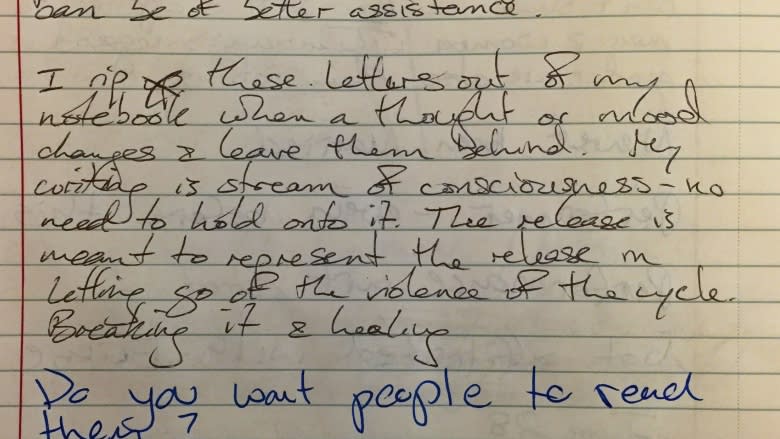 can be of better assistance.
I rip these letters out of my
notebook when a thought or mood
changes & leave them behind. My
writing is stream of consciousness - no
need to hold onto it. The release is
meant to represent the release in
letting go of the violence of the cycle.
Breaking it & healing
Do you want people to read
them?